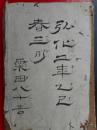 弘化二年乙巳
春三月
栗田八十吉